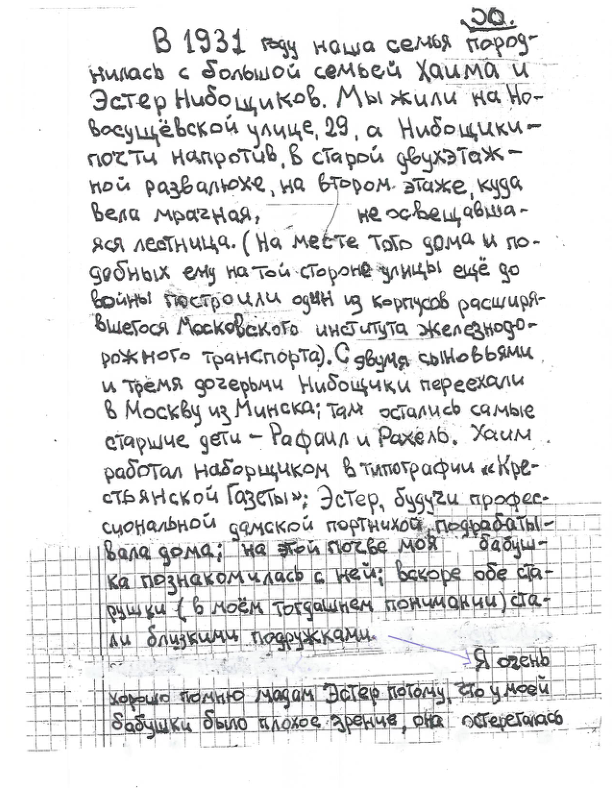 30.
В 1931 году наша семья пород-
нилась с большой семьей Хаима и
Эстер Нибощиков. Мы жили на Но-
восущёвской улице, 29, а Нибощики -
почти напротив, в старой двухэтаж-
ной развалюхе, на втором этаже, куда
вела мрачная, не освещавша-
яся лестница. (На месте того дома и по-
добных ему на той стороне улицы ещё до
войны построили один из корпусов расширя-
вшегося Московского института железнодо-
рожного транспорта). С двумя сыновьями
и тремя дочерьми Нибощики переехали
в Москву из Минска; там остались самые
старшие дети - Рафаил и Рахель. Хаим
работал наборщиком в типографии «Кре-
стьянской Газеты»; Эстер, будучи профес-
сиональной дамской портнихой, подрабаты-
вала дома; на этой почве моя бабуш-
ка познакомилась с ней; вскоре обе ста-
рушки (в моём тогдашнем понимании) ста-
ли близкими подружками.
Я очень
хорошо помню мадам Эстер потому, что у моей
бабушки было плохое зрение, она остерегалась